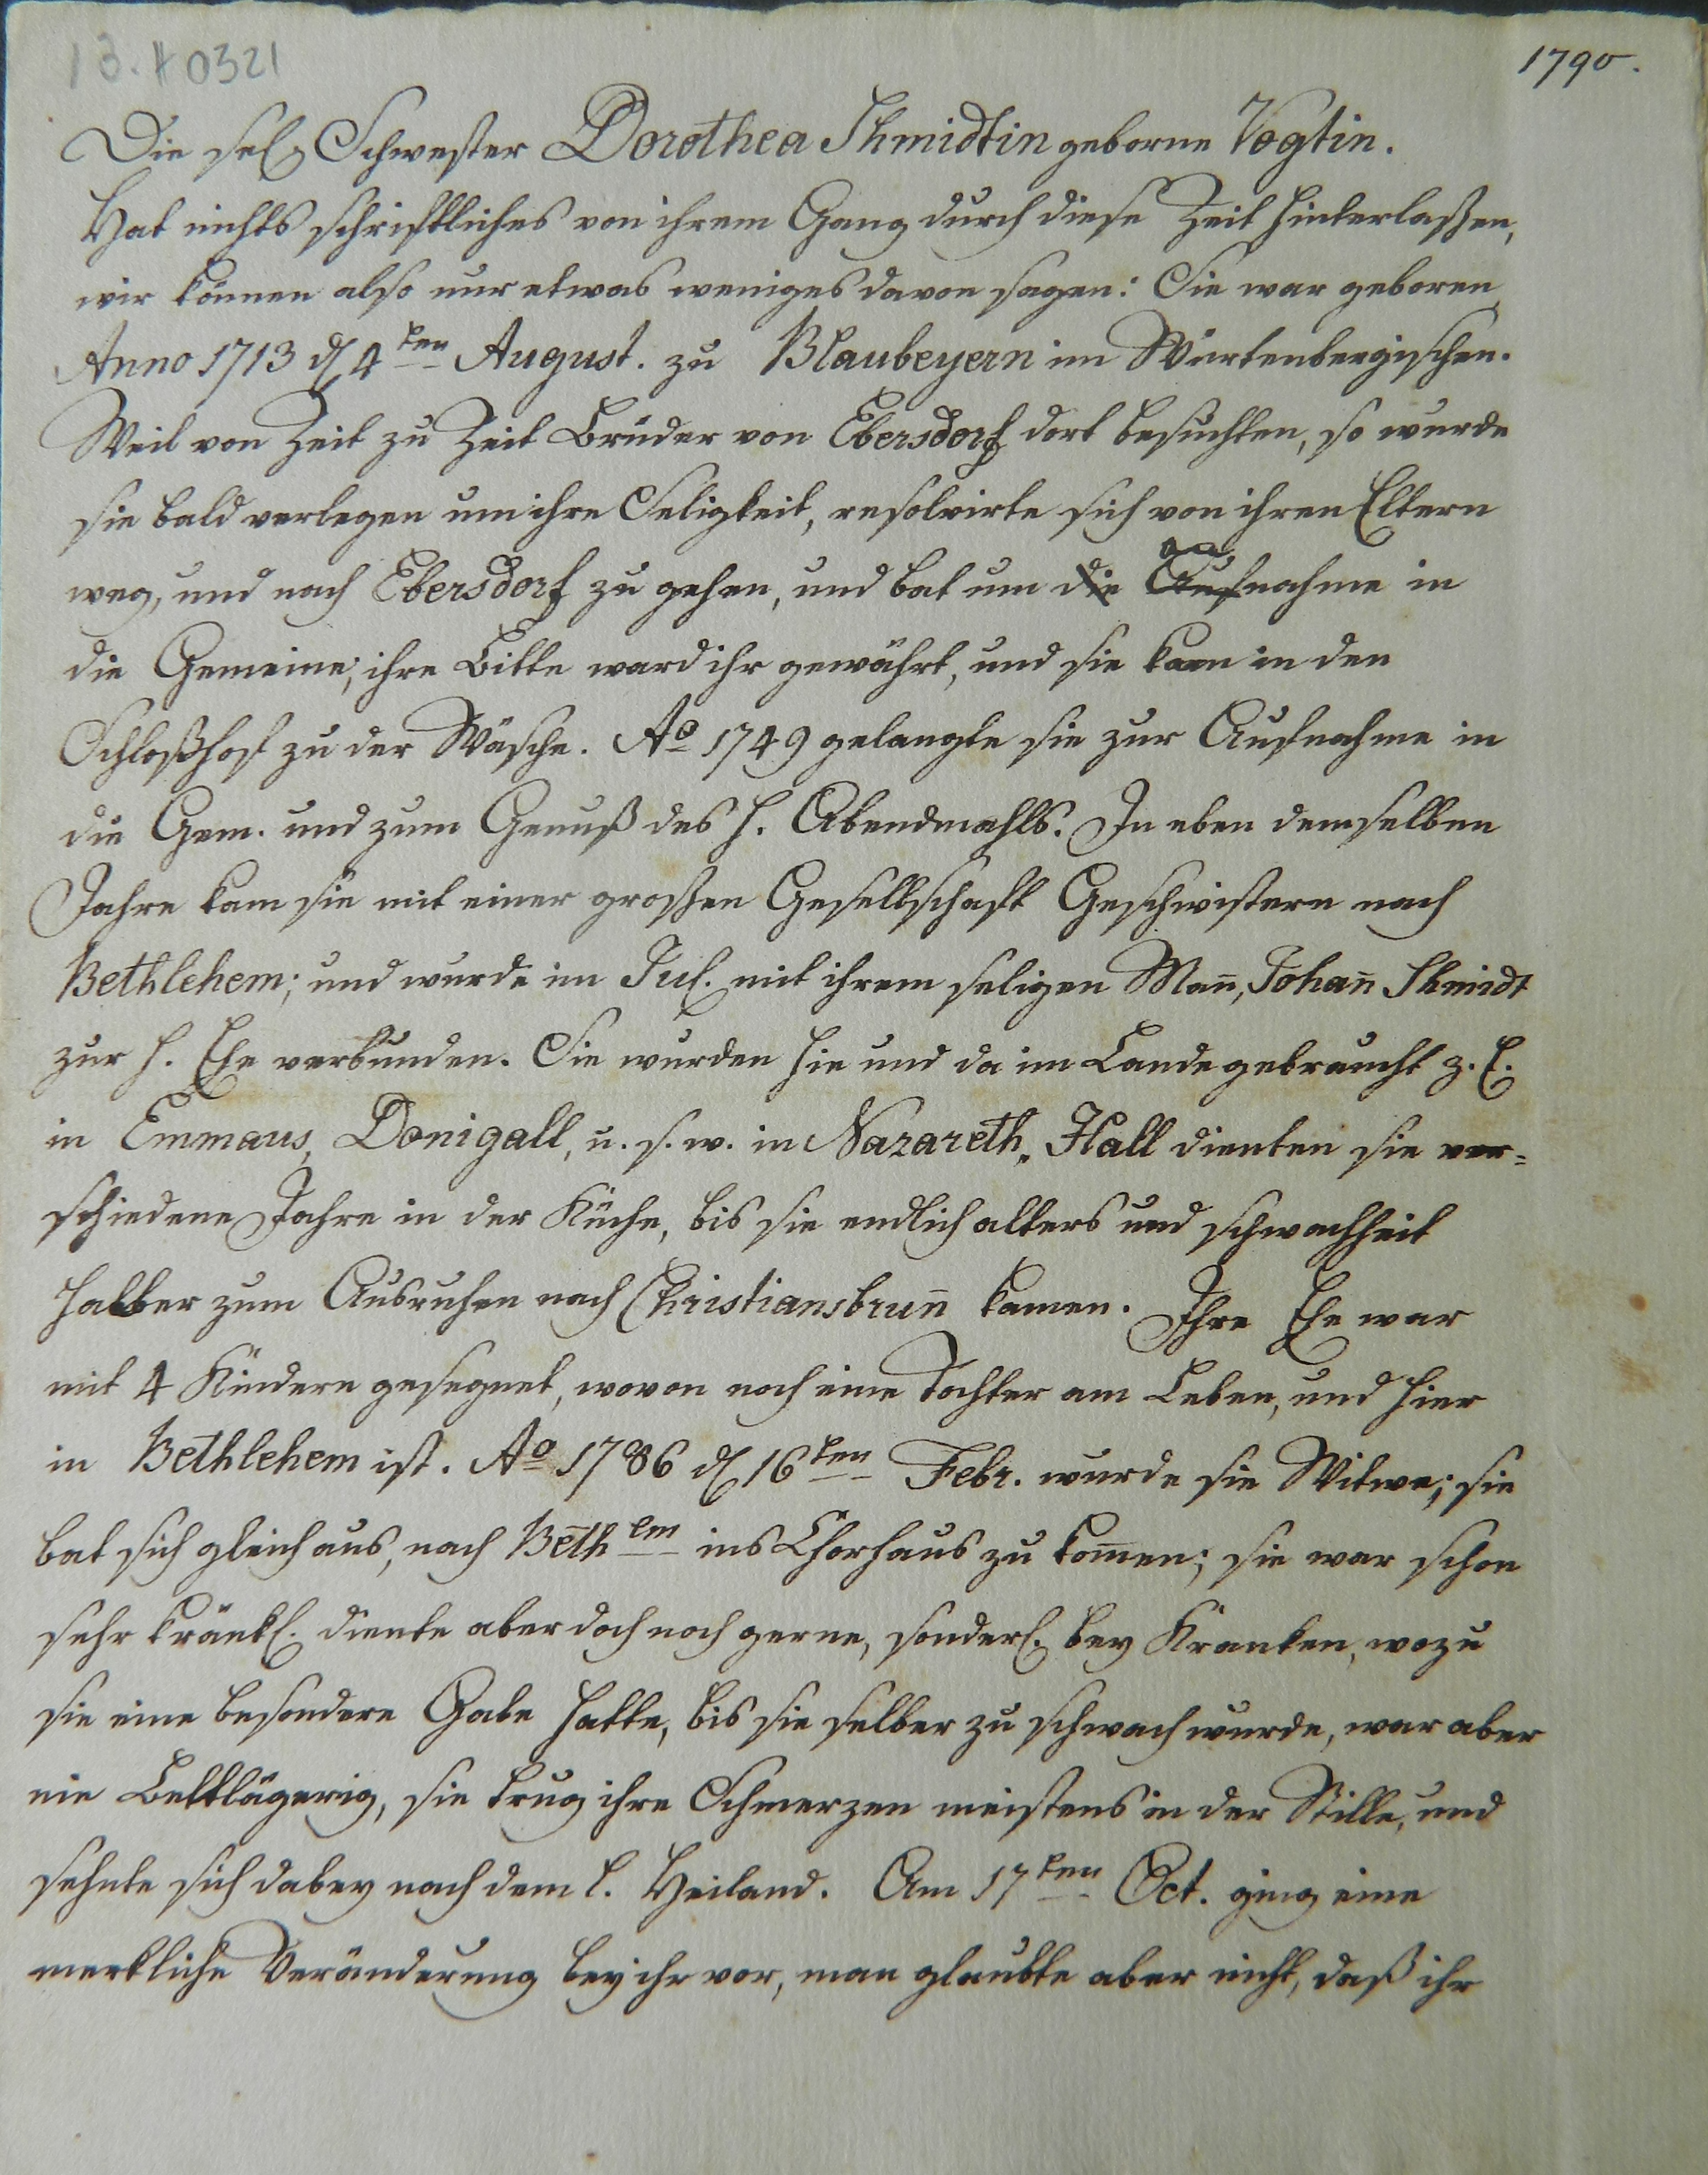 13. H 0321
1790.
Die sel. Schwester Dorothea Shmidtin geborne Vogtin.
Hat nichts schriftliches von ihrem Gang durch diese Zeit hinterlaßen,
wir können also nur etwas weniges davon sagen: Sie war geboren
Anno 1713 d. 4ten August. zu Blaubeyern im Würtenbergischen.
Weil von Zeit zu Zeit Brüder von Ebersdorf dort besuchten, so wurde
sie bald verlegen um ihre Seligkeit, resolvirte sich von ihren Eltern
weg, und nach Ebersdorf zu gehen, und bat um die Aufnahme in
die Gemeine; ihre Bitte ward ihr gewährt, und sie kam in den
Schloßhof zu der Wäsche. Ao 1749 gelangte sie zur Aufnahme in
die Gem. und zum Genuß des h. Abendmahls. In eben demselben
Jahre kam sie mit einer großen Gesellschaft Geschwistern nach
Bethlehem; und wurde im Jul. mit ihrem seligen Man̅, Johan̅ Shmidt
zur h. Ehe verbunden. Sie wurden hie und da im Lande gebraucht z. E.
in Emmaus, Donigall, u. s. w. in Nazareth, Hall dienten sie ver=
schiedene Jahre in der Küche, bis sie endlich alters und schwachheit
halber zum Ausruhen nach Christiansbrun̅ kamen. Ihre Ehe war
mit 4 Kindern gesegnet, wovon noch eine Tochter am Leben, und hier
in Bethlehem ist. Ao 1786 d. 16ten Febr. wurde sie Witwe; sie
bat sich gleich aus, nach Bethem ins Chorhaus zu kom̅en; sie war schon
sehr kränkl. diente aber doch noch gerne, sonderl. bey Kranken, wozu
sie eine besondere Gabe hatte, bis sie selber zu schwach wurde, war aber
nie Bettlägerig, sie trug ihre Schmerzen meistens in der Stille, und
sehnte sich dabey nach dem l. Heiland. Am 17ten Oct. ging eine
merkliche Veränderung bey ihr vor, man glaubte aber nicht, daß ihr